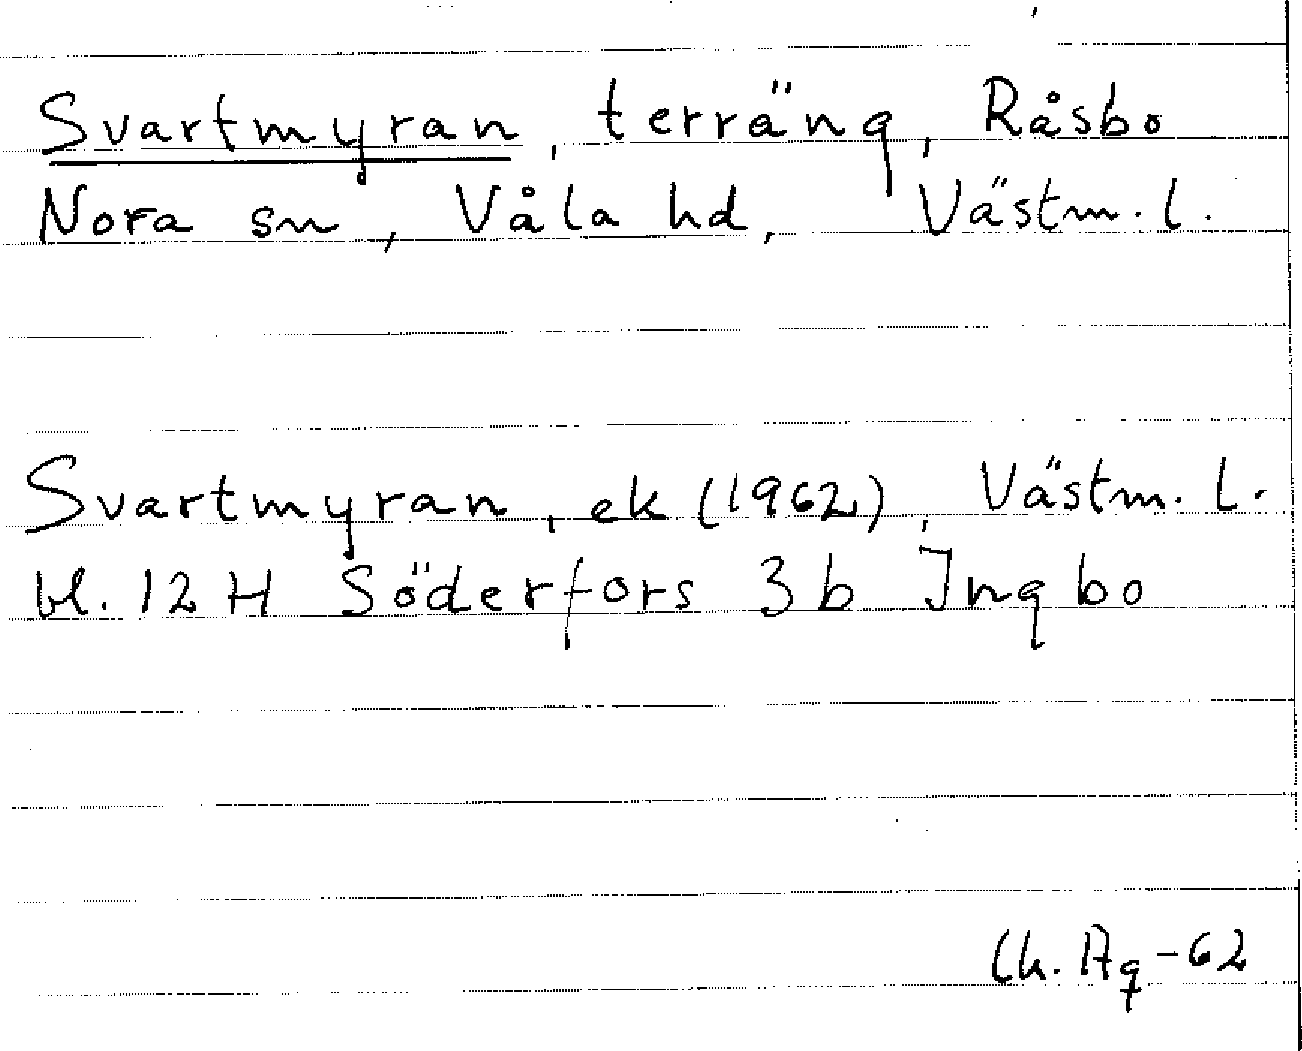 Svartmyran, terräng, Råsbo
Nora sn, Våla hd, Västm. l.
Svartmyran, ek (1962), Västm. l.
bl. 12 H Söderfors 3 b Ingbo
Ch. Ag -62